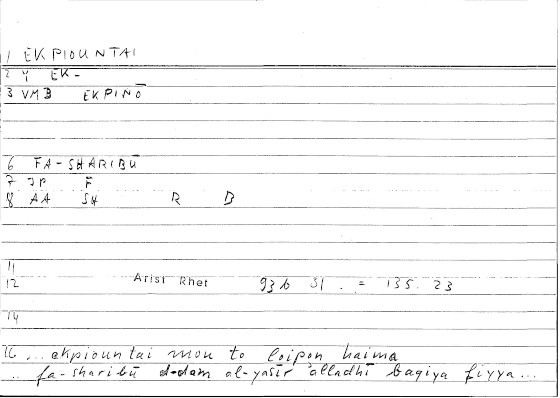 1 EKPIOUNTAI
2 Y EK-
3 VMB EKPINŌ
6 FA-SHARIBŪ
7 JP F
8 AA SH R B
11
12 Arist Rhet 93b 31. = 135.23
14
16 ... ekpiountai mou to loipon haima
.. fa-sharibū d-dam al-yasīr alladhī baqiya fiyya...